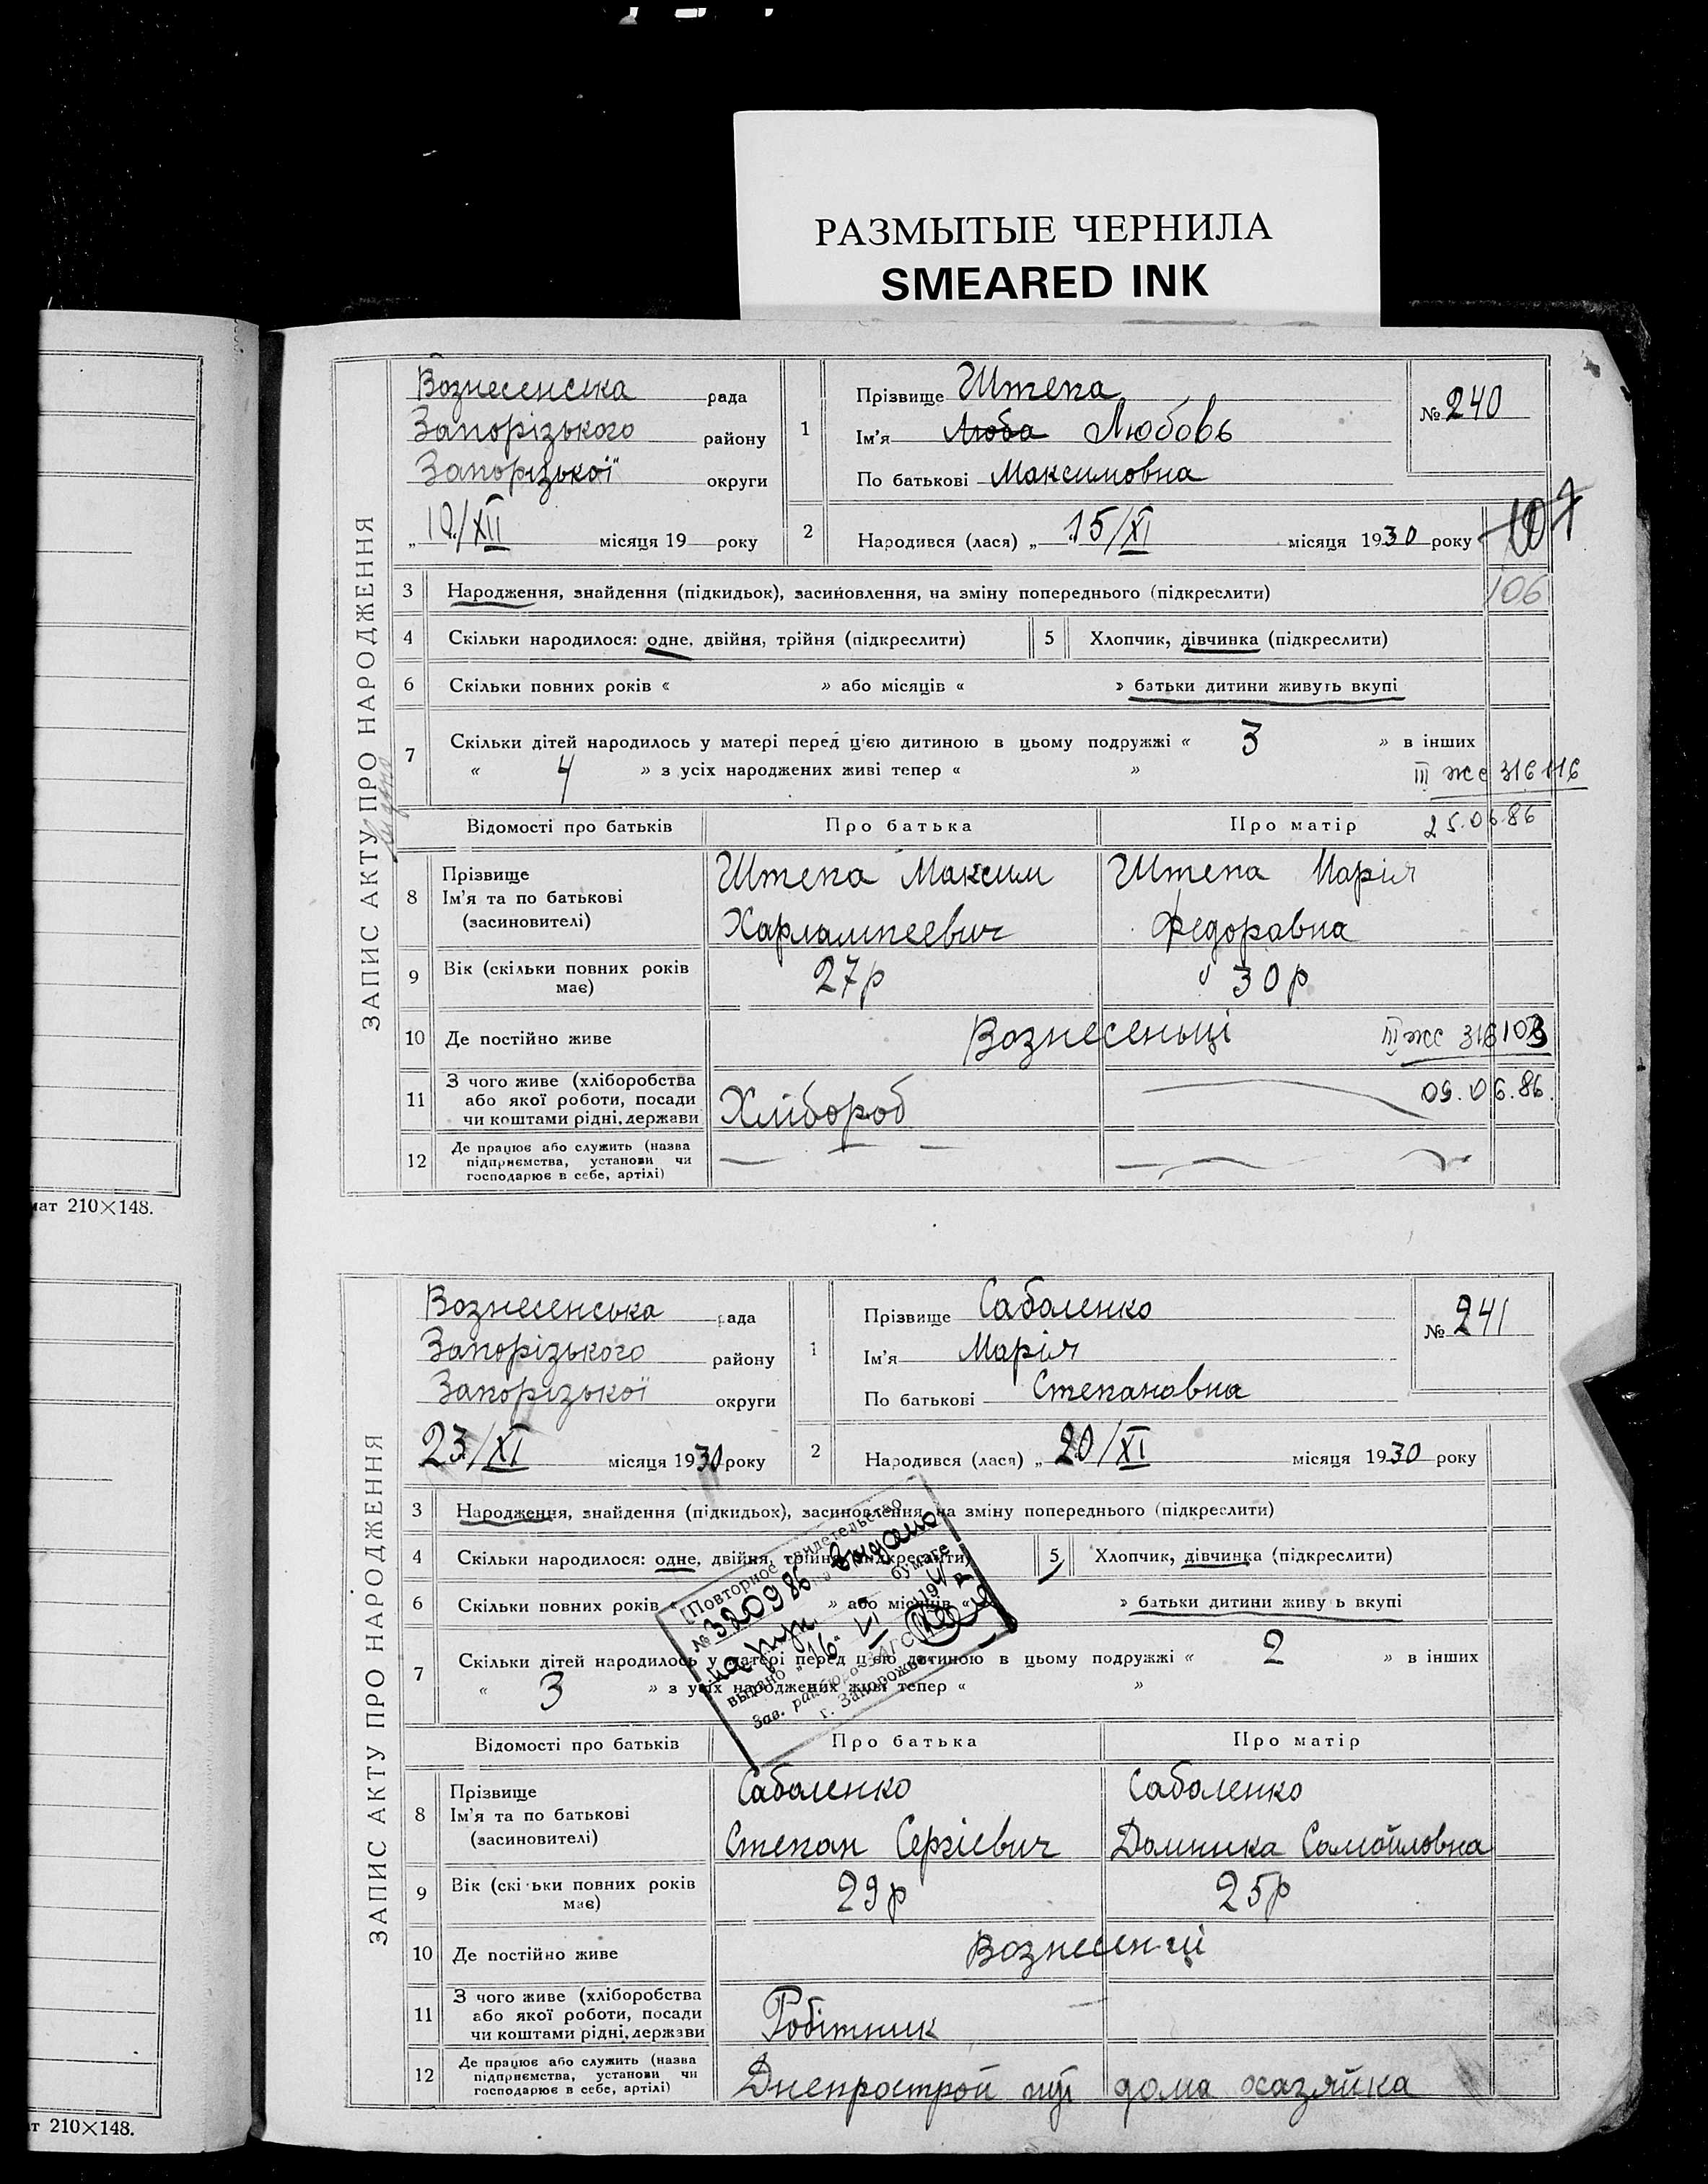 РАЗМЫТЫЕ ЧЕРНИЛА
SMEARED INK
ЗАПИС АКТУ ПРО НАРОДЖЕННЯ
Вознесенська рада
Запорізького району
Запорізької округи
„ 10/XII місяця 19 року
1
Прізвище Штепа
Ім'я Люба Любовь
По батькові Максимовна
№ 240
2
Народився (лася) „ 15/XI місяця 1930 року
107
106
3 Народження, знайдення (підкидьок), засиновлення, на зміну попереднього (підкреслити)
4 Скільки народилося: одне, двійня, трійня (підкреслити) 5 Хлопчик, дівчинка (підкреслити)
6 Скільки повних років « » або місяців « » батьки дитини живуть вкупі
7 Скільки дітей народилось у матері перед цією дитиною в цьому подружжі « 3 » в інших
« 4 » з усіх народжених живі тепер « »
III жс 316116
25.06.86
Відомості про батьків Про батька Про матір
8 Прізвище
Ім'я та по батькові
(засиновителі)
Штепа Максим
Харлампеевич
Штепа Марія
Федоравна
9 Вік (скільки повних років
має)
27р 30р
10 Де постійно живе Вознесеньці
III жс 316103
09.06.86.
11 З чого живе (хліборобства
або якої роботи, посади
чи коштами рідні, держави
Хлібороб
12 Де працює або служить (назва
підприємства, установи чи
господарює в себе, артілі)
мат 210×148.
ЗАПИС АКТУ ПРО НАРОДЖЕННЯ
Вознесенська рада
Запорізького району
Запорізької округи
23/XI місяця 1930 року
1
Прізвище Сабаленко
Ім'я Марія
По батькові Степановна
№ 241
2
Народився (лася) „ 20/XI місяця 1930 року
3 Народження, знайдення (підкидьох), засиновлення, на зміну попереднього (підкреслити)
4 Скільки народилося: одне, двійня, трійня (підкреслити) 5 Хлопчик, дівчинка (підкреслити)
6 Скільки повних років « » або місяців « » батьки дитини живу ь вкупі
7 Скільки дітей народилось у матері перед цією дитиною в цьому подружжі « 2 » в інших
« 3 » з усіх народжених живі тепер « »
Повторное свидетельство
№ 320986 выдано
бумаге
выдано „16" VI 19
Зав. районо ЗАГС
г. Запорожье
Відомості про батьків Про батька Про матір
8 Прізвище
Ім'я та по батькові
(засиновителі)
Сабаленко
Степан Сергієвич
Сабаленко
Домника Самойловна
9 Вік (скі ьки повних років
має)
29р 25р
10 Де постійно живе Вознесенці
11 З чого живе (хліборобства
або якої роботи, посади
чи коштами рідні, держави
Робітник
12 Де працює або служить (назва
підприємства, установи чи
господарює в себе, артілі)
Днепрострой дома хазяйка
т 210×148.